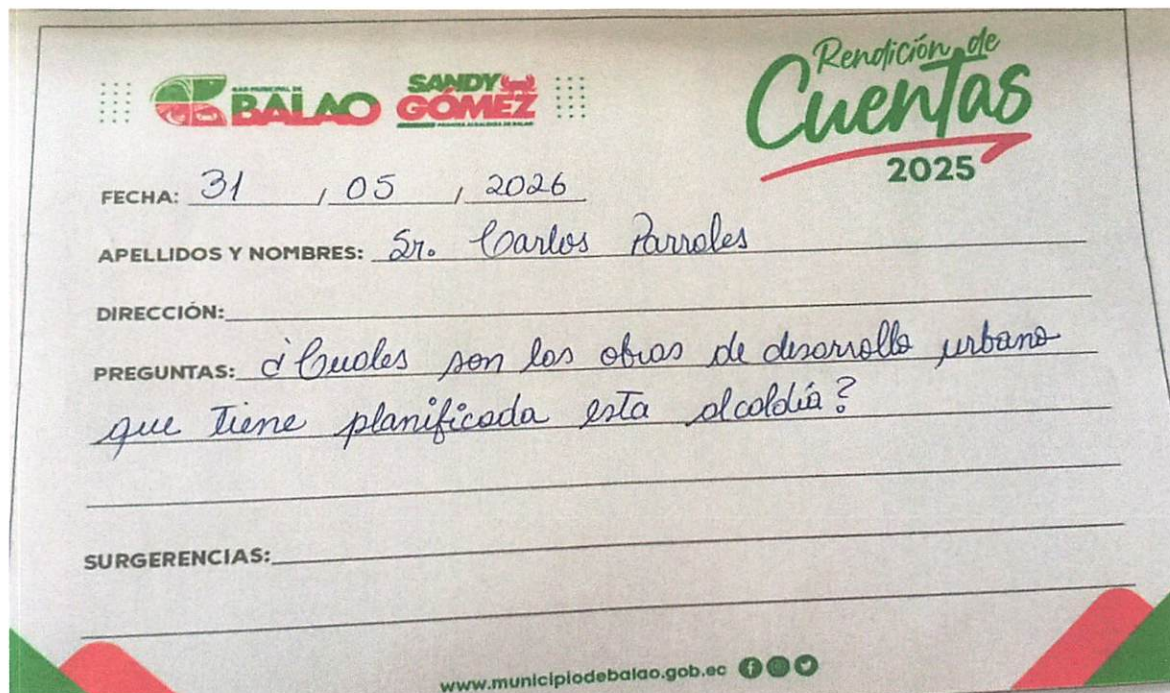 GAD MUNICIPAL DE
BALAO
SANDY
GÓMEZ
PRIMERA ALCALDESA DE BALAO
Rendición de
Cuentas
2025
FECHA: 31 / 05 / 2026
APELLIDOS Y NOMBRES: Sr. Carlos Parrales
DIRECCIÓN:
PREGUNTAS: ¿Cuales son las obras de desarrollo urbano
que tiene planificada esta alcaldía?
SURGERENCIAS:
www.municipiodebalao.gob.ec